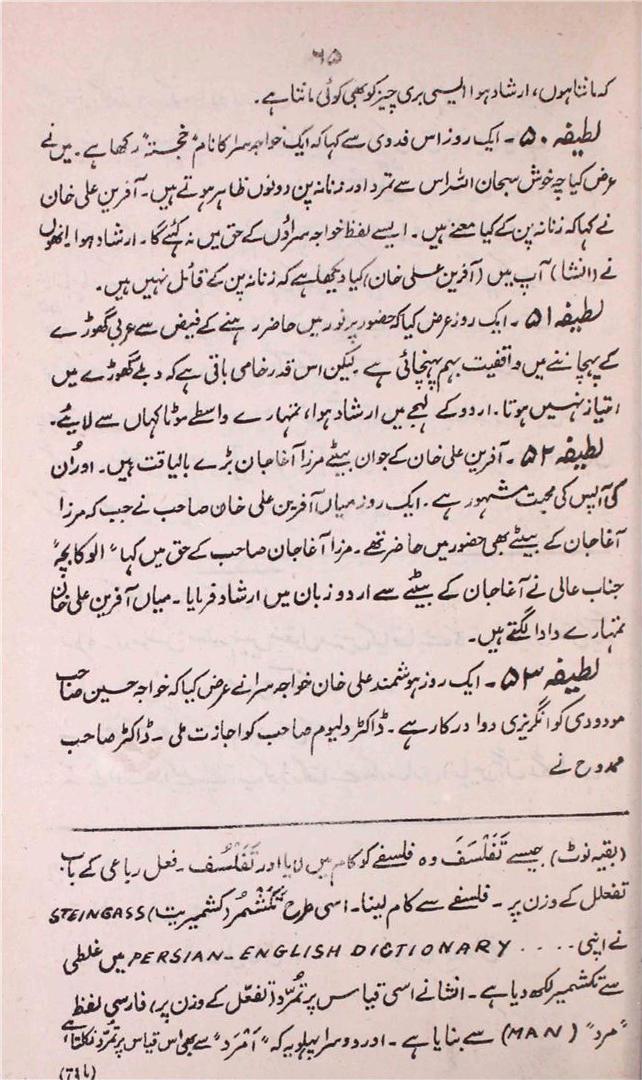 ۶۵
کہ مانتا ہوں، ارشاد ہوا ایسی بری چیز کو بھی کوئی مانتا ہے۔
لطیفہ ۵۰۔ ایک روز اس فدوی سے کہا کہ ایک خواجہ سرا کا نام "خجستہ" رکھا ہے۔ میں نے
عرض کیا چہ خوش سبحان اللہ اس سے تمرد اور زنانہ پن دونوں ظاہر ہوتے ہیں۔ آفرین علی خان
نے کہا کہ زنانہ پن کے کیا معنے ہیں۔ ایسے لفظ خواجہ سراؤں کے حق میں نہ کہئے گا۔ ارشاد ہوا انھوں
نے (انشا) آپ میں (آفرین علی خان) کیا دیکھا ہے کہ زنانہ پن کے قائل نہیں ہیں۔
لطیفہ ۵۱۔ ایک روز عرض کیا کہ حضور پر نور میں حاضر رہنے کے فیض سے عربی گھوڑے
کے پہچاننے میں واقفیت بہم پہنچائی ہے لیکن اس قدر خامی باقی ہے کہ دبلے گھوڑے میں
امتیاز نہیں ہوتا۔ اردو کے لہجے میں ارشاد ہوا، تمہارے واسطے موٹا کہاں سے لائیے۔
لطیفہ ۵۲۔ آفرین علی خان کے جوان بیٹے مرزا آغا جان بڑے بالیاقت ہیں۔ اور اُن
کی آپس کی محبت مشہور ہے۔ ایک روز میاں آفرین علی خان صاحب نے جب کہ مرزا
آغا جان کے بیٹے بھی حضور میں حاضر تھے۔ مرزا آغا جان صاحب کے حق میں کہا "الو کا بچہ"
جناب عالی نے آغا جان کے بیٹے سے اردو زبان میں ارشاد فرمایا۔ میاں آفرین علی خان
تمہارے دادا لگتے ہیں۔
لطیفہ ۵۳۔ ایک روز ہوشمند علی خان خواجہ سرا نے عرض کیا کہ خواجہ حسین صاحب
مودودی کو انگریزی دوا درکار ہے۔ ڈاکٹر ولیوم صاحب کو اجازت ملی۔ ڈاکٹر صاحب
ممدوح نے
(بقیہ نوٹ) جیسے تَفَلْسَفَ وہ فلسفے کو کام میں لایا اور تَفَلْسُف۔ فعل رباعی کے باب
تفعلل کے وزن پر۔ فلسفے سے کام لینا۔ اسی طرح تَکَشْمُر (کشمیریت) STEINGASS
نے اپنی .... PERSIAN-ENGLISH DICTIONARY میں غلطی
سے تکشمیر لکھ دیا ہے۔ انشا نے اسی قیاس پر تمُرّد (تفعّل کے وزن پر) فارسی لفظ
"مرد" (MAN) سے بنایا ہے۔ اور دوسرا پہلو یہ کہ "اَمْرَد" سے بھی اس قیاس پر تمرّد نکلتا ہے